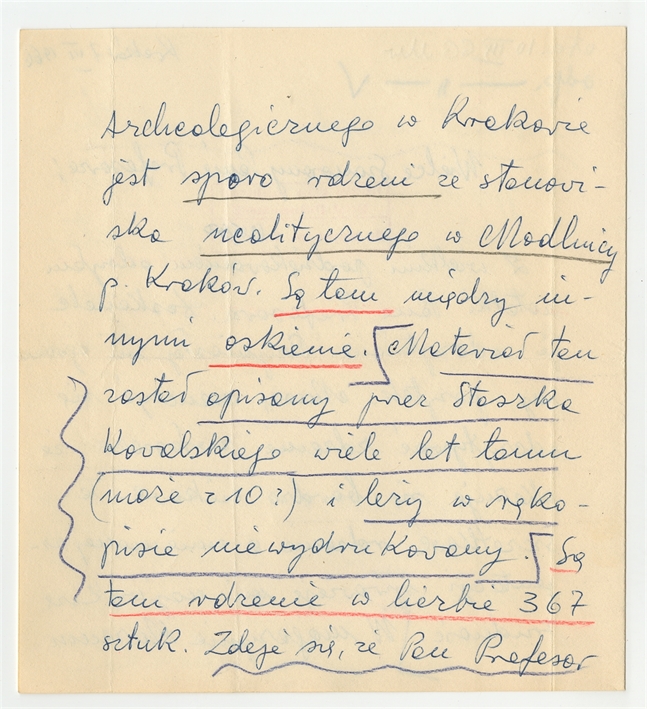 Archeologicznego w Krakowie
jest sporo rdzeni ze stanowi-
ska neolitycznego w Modlnicy
p. Kraków. Są tam między in-
nymi oskienie. Materiał ten
został opisany przez Staszka
Kowalskiego wiele lat temu
(może z 10?) i leży w ręko-
pisie niewydrukowany. Są
tam rdzenie w liczbie 367
sztuk. Zdaje się, że Pan Profesor